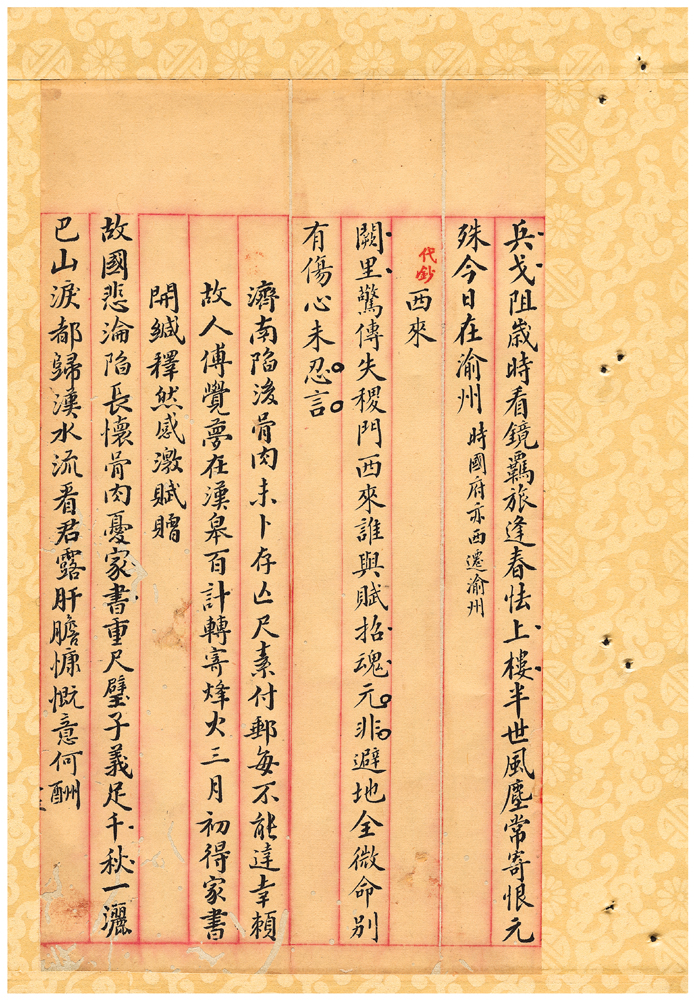 兵戈阻歲時看鏡羈旅逢春怯上樓半世風塵常寄恨元
殊今日在渝州 時國府亦西遷渝州
代鈔 西來
闕里驚傳失稷門西來誰與賦招魂元非避地全微命別
有傷心未忍言
濟南陷後骨肉未卜存亡尺素付郵每不能達幸賴
故人傅覺夢在漢皋百計轉寄烽火三月初得家書
開緘釋然感激賦贈
故國悲淪陷長懷骨肉憂家書重尺璧子義足千秋一灑
巴山淚都歸漢水流看君露肝膽慷慨意何酬